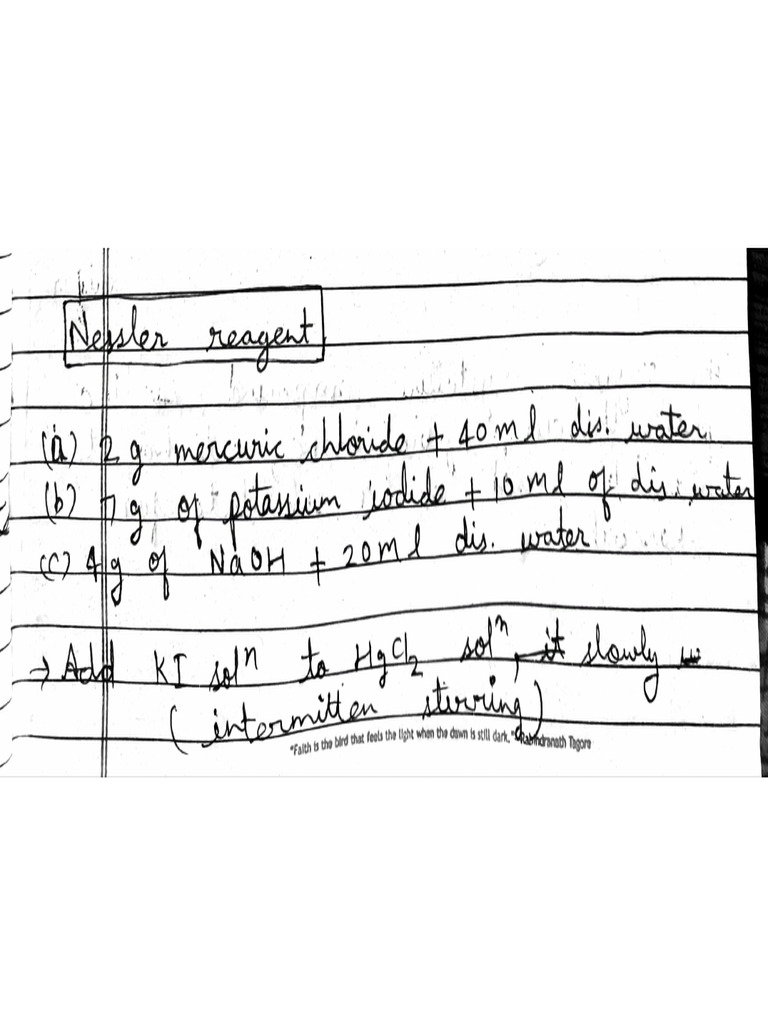 Nessler reagent
(a) 2 g mercuric chloride + 40 ml dis. water
(b) 7 g of potassium iodide + 10 ml of dis. water
(c) 4 g of NaOH + 20 ml dis. water
→ Add KI solⁿ to HgCl₂ solⁿ, it slowly
(intermitten stirring)
"Faith is the bird that feels the light when the dawn is still dark." Rabindranath Tagore